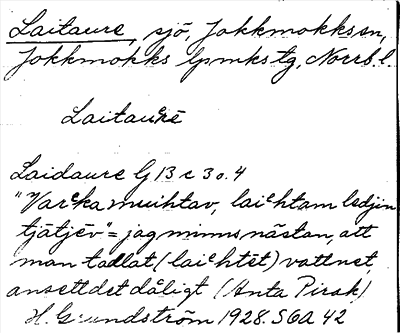 Laitaure, sjö, Jokkmokks sn,
Jokkmokks lpmks tg, Norrb. l.
Laitaurē
Laidaure G 13 c 3 o. 4
"Varᵉka muihtav, laiᶜhtam
tjātjēv" = jag minns nästan, att
man tadlat (laiᶜhtēt) vattnet,
ansett det dåligt (Anta Pirak)
H. Grundström 1928. SOA 42